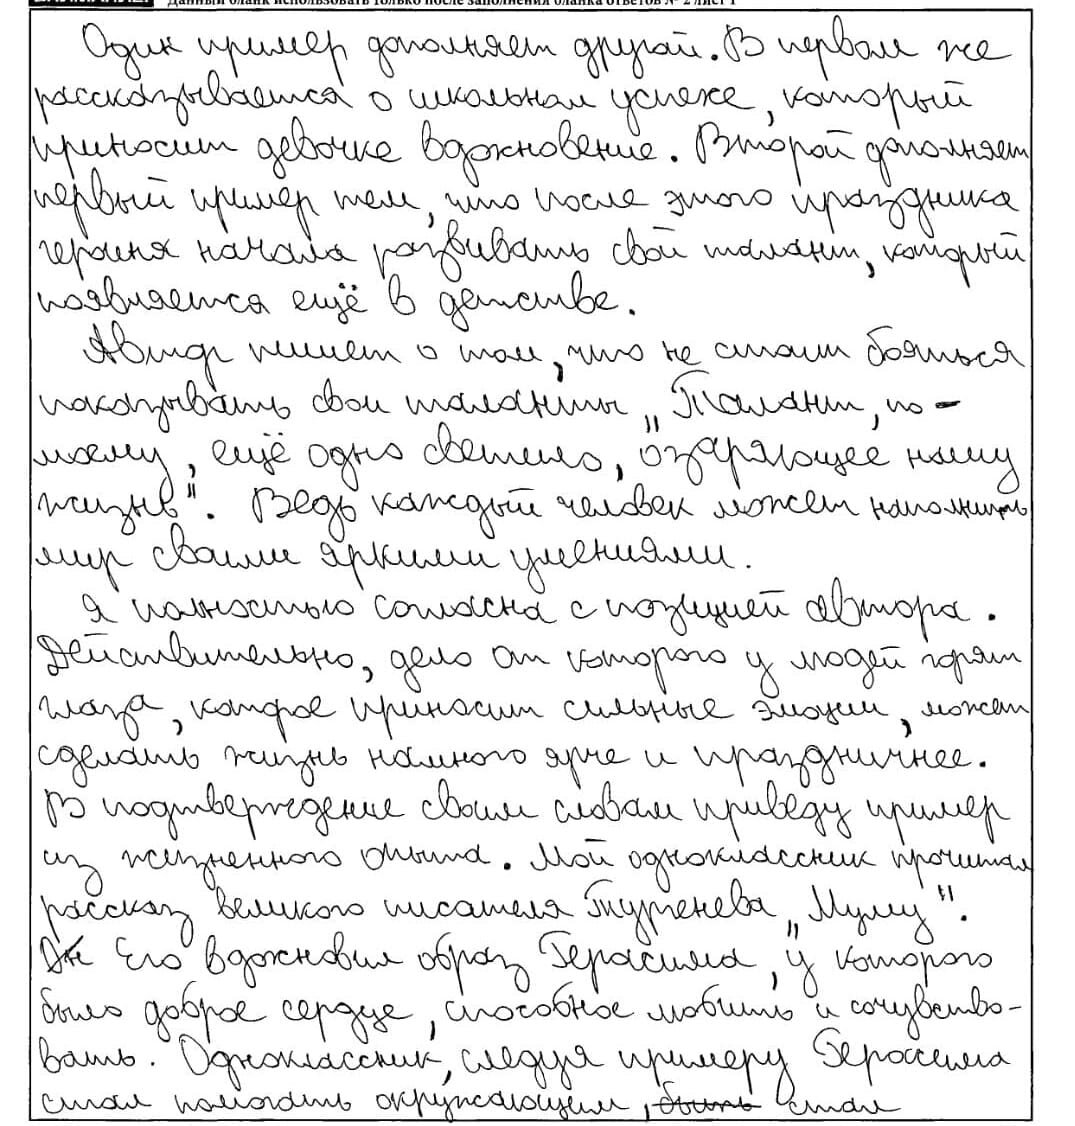 Данный бланк использовать только после заполнения бланка ответов № 2 лист 1
Один пример дополняет другой. В первом же
рассказывается о школьном успехе, который
приносит девочке вдохновение. Второй дополняет
первый пример тем, что после этого праздника
героиня начала развивать свой талант, который
появляется ещё в детстве.
Автор пишет о том, что не стоит бояться
показывать свои таланты „Талант, по-
моему, ещё одно светило, озаряющее нашу
жизнь". Ведь каждый человек может наполнить
мир своими яркими умениями.
Я полностью согласна с позицией автора.
Действительно, дело от которого у людей горят
глаза, которое приносит сильные эмоции, может
сделать жизнь намного ярче и праздничнее.
В подтверждение своим словам приведу пример
из жизненного опыта. Мой одноклассник прочитал
рассказ великого писателя Тургенева „Муму".
Его вдохновил образ Герасима, у которого
было доброе сердце, способное любить и сочувство-
вать. Одноклассник, следуя примеру Герассима
стал помогать окружающим, быть стал